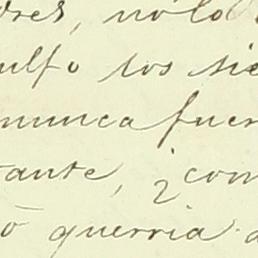 dres, no lo
ulfo los sie
nunca fuer
tante, ¿com
ō querria a